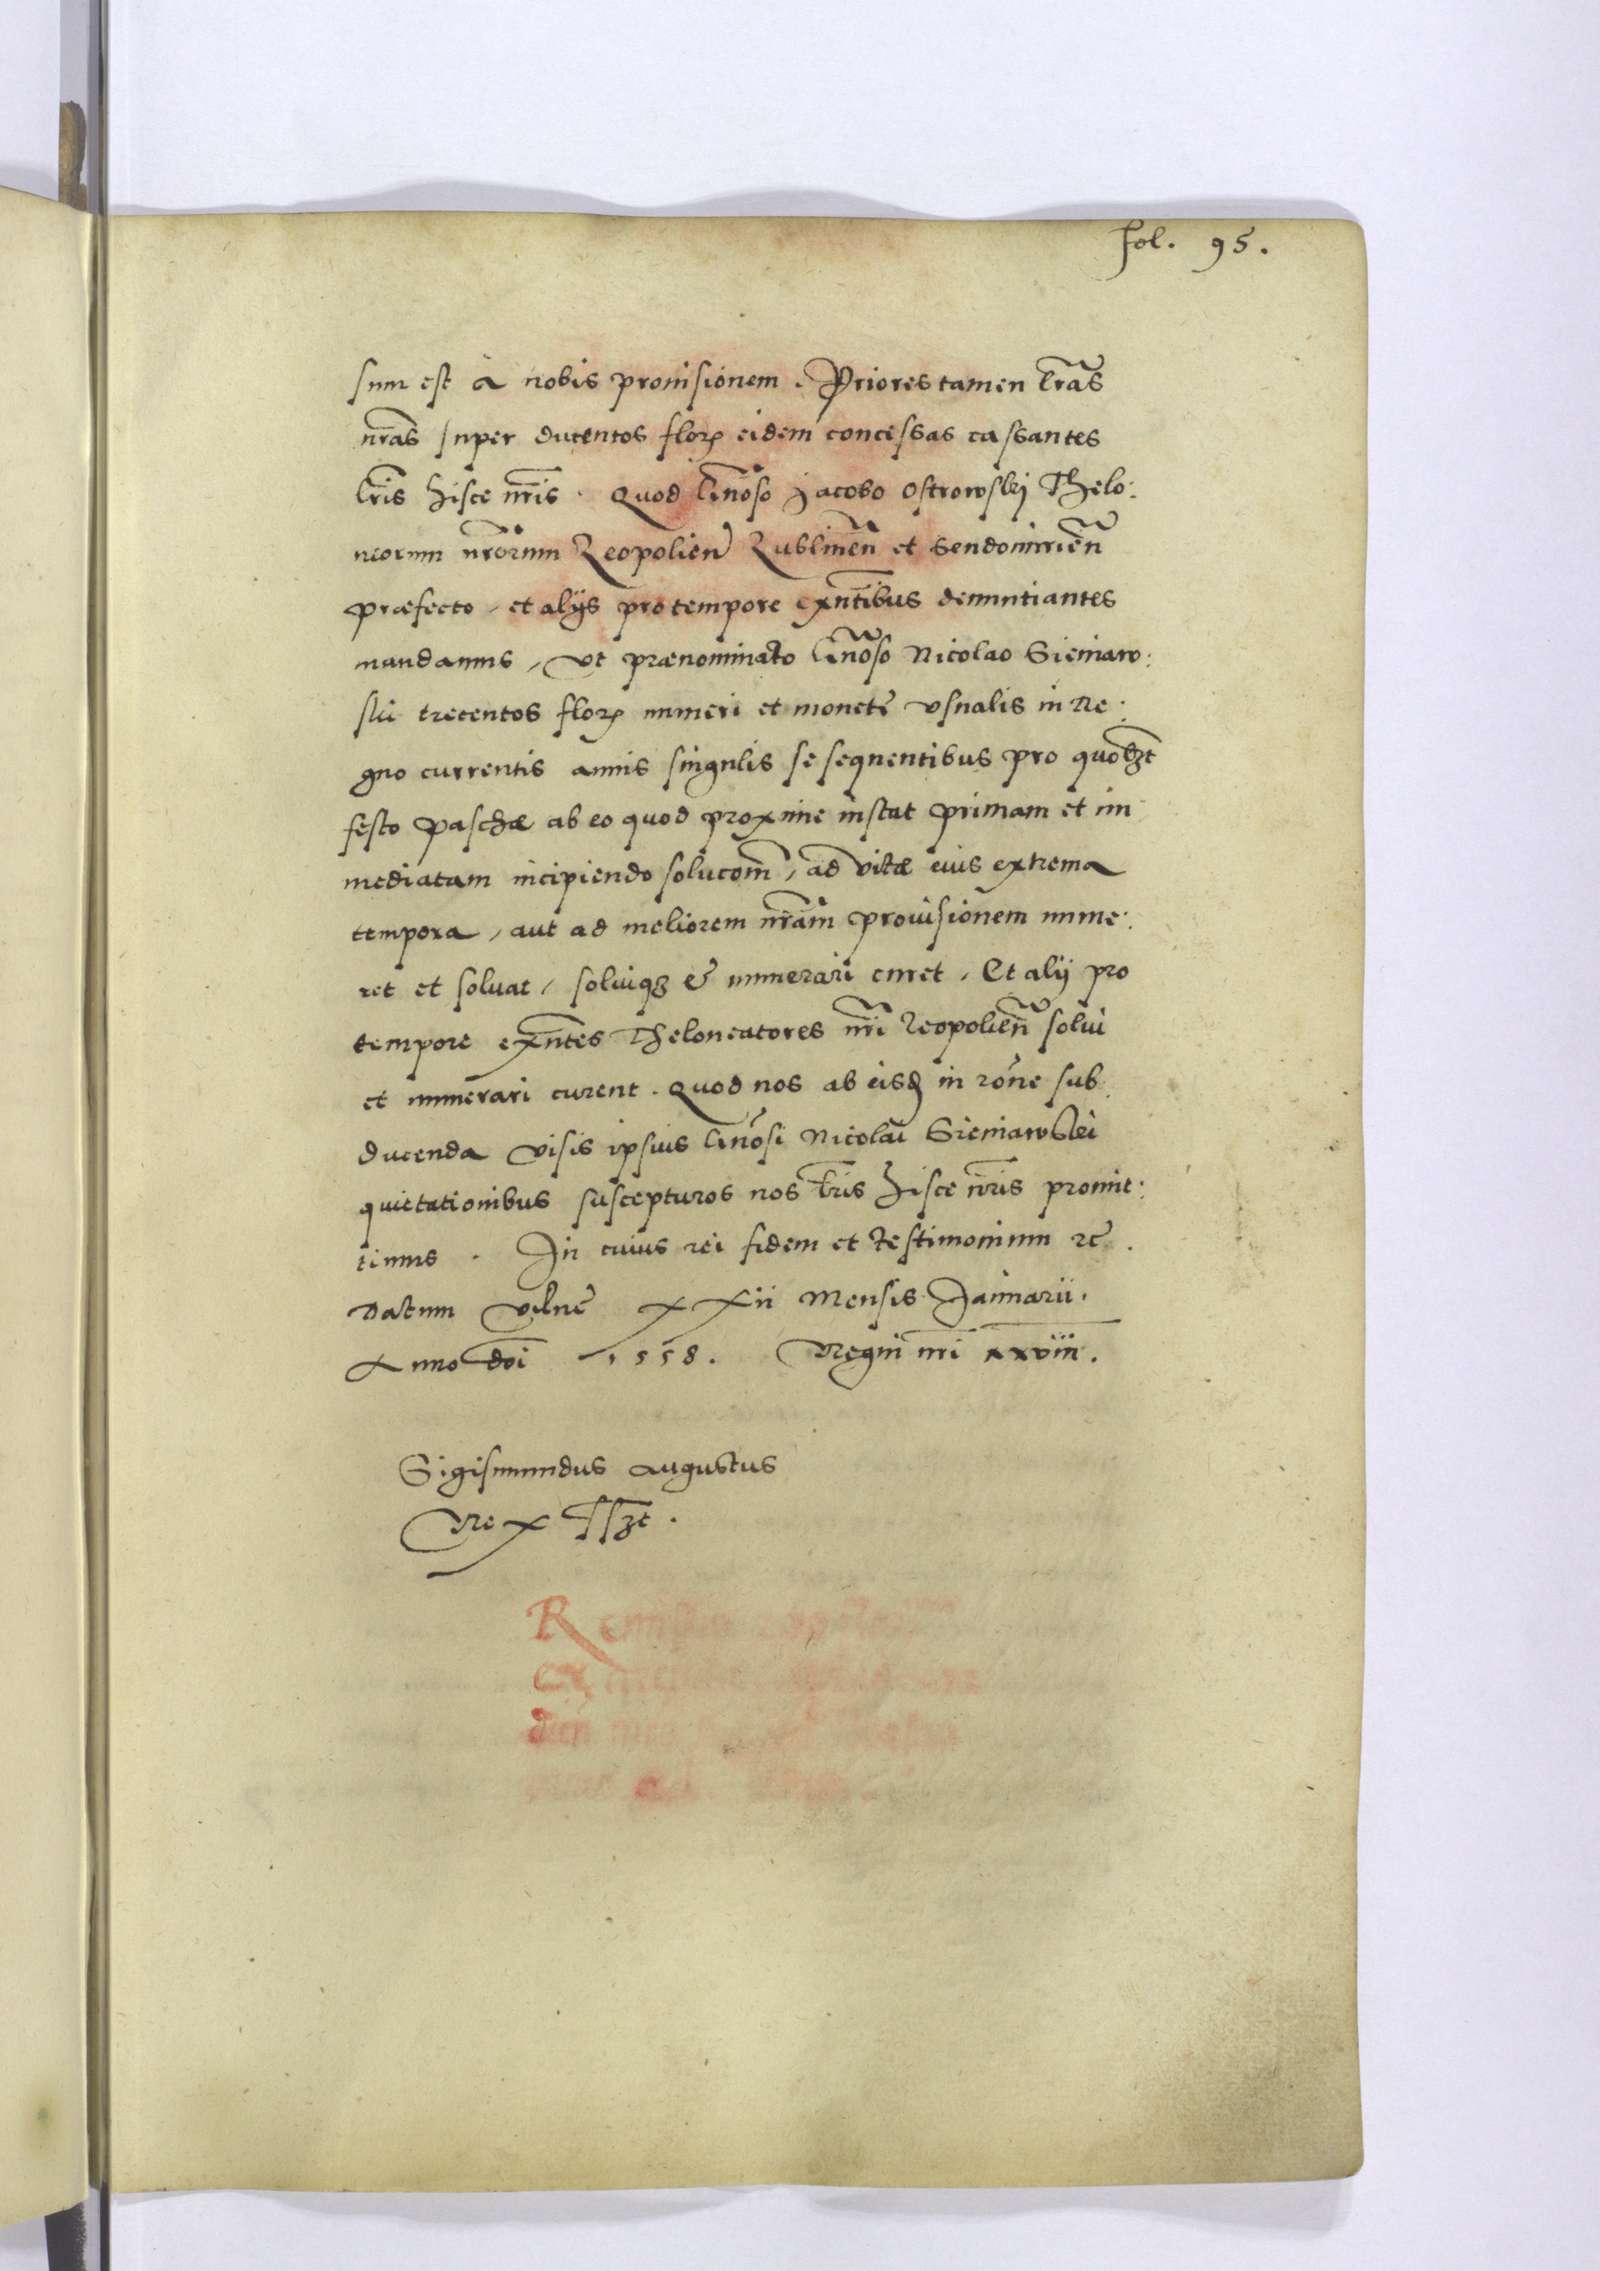 fol. 95.
sum est à nobis prouisionem. Priores tamen lr̃as
nr̃as super ducentos floꝝ eidem concessas cassantes
lr̃is hisce nr̃is. Quod Gn̄oso Jacobo Ostrowskj Thelo:
neorum nr̃orum Leopolien̄ Lublinen̄ et Sendomirien̄
præfecto, et alijs pro tempore exn̄tibus denuntiantes
mandamus, vt prænominato Gn̄oso Nicolao Sieniaw:
skii trecentos floꝝ numeri et monetę vsualis in Re:
gno currentis annis singulis se sequentibus pro quolꝫt
festo paschæ ab eo quod proxime instat primam et im
mediatam incipiendo solucom̄, ad vitæ eius extrema
tempora, aut ad meliorem nr̃am prouisionem nume:
ret et soluat, soluiqꝫ & numerari curet, Et alij pro
tempore exn̄tes Theloneatores nr̃i Leopolien̄ solui
et numerari curent. Quod nos ab eisđ in rōne sub
ducenda visis ipsius Gn̄osi Nicolai Sieniawskii
quietationibus suscepturos nos lr̃is hisce nr̃is promit:
timus. In cuius rei fidem et testimonium rc̄.
Datum Vilnę XXii Mensis Januarii.
Anno dn̄i 1558. Regni nr̃i xxviii.
Sigismundus Augustus
Rex sszt.